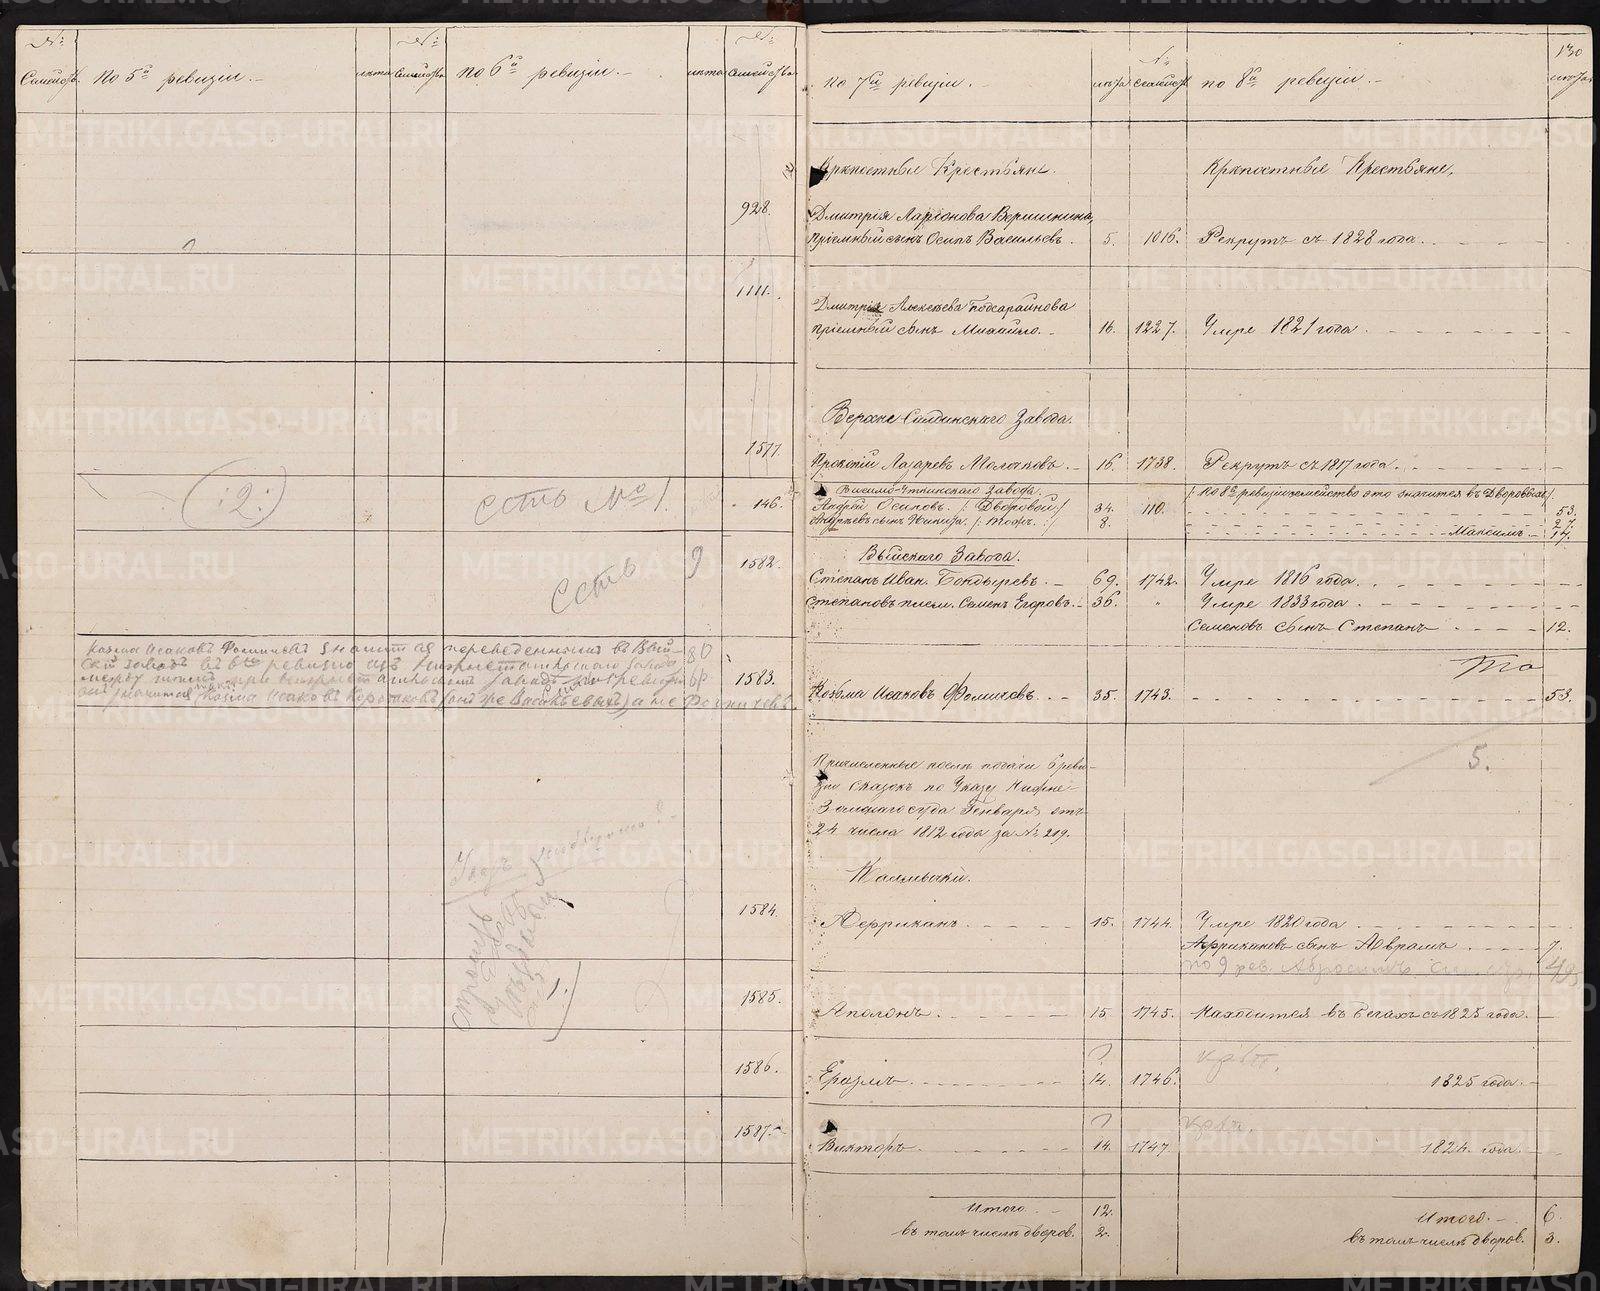 130
№
Семействъ.
По 5й ревизіи.
лѣта
№
Семейства
по 6й ревизіи.
лѣта
№
Семейства
по 7й ревизіи.
лѣта
№
Семейст.
по 8й ревизіи.
лѣта
Крѣпостные Крестьяне.
Крѣпостные Крестьяне.
928.
Дмитрія Ларіонова Вершинина,
пріемный сынъ Осипъ Васильевъ.
5.
1016.
Рекрутъ съ 1828 года.
1111.
Дмитрія Алексѣева Подсарайнова
пріемный сынъ Михайло.
16.
1227.
Умре 1821 года.
Верхне-Салдинскаго Завода.
1577.
Прокопій Лазаревъ Молочковъ.
16.
1738.
Рекрутъ съ 1817 года.
:2:
есть № 1.
146.
Висимо-Уткинскаго Завода.
Андрей Осиповъ. /: Дворовой :/
34.
110.
/: по 8й ревизіи семейство это значится въ Дворовыхъ :/
53.
Андреевъ сынъ Никита. /: тоже. :/
8.
27.
Максимъ
14.
Выйскаго Завода.
есть
9
1582.
Степанъ Иван. Бондыревъ.
69.
1742.
Умре 1816 года.
Степановъ плем. Семенъ Егоровъ.
36.
"
Умре 1833 года.
Семеновъ сынъ Степанъ
12.
Козма Исаковъ Фомичевъ значится переведеннымъ въ Вый-
80
скій заводъ въ 6ю ревизію изъ Нижнетагильскаго завода
1583.
Козма Исаковъ
Козьма Исаковъ Фомичевъ.
35.
1743.
53.
5.
Причисленные послѣ подачи 6 реви-
зіи сказокъ по Указу Нижне-
Земскаго суда Генваря отъ
24 числа 1812 года за № 219.
Калмыки.
1584.
Африканъ.
15.
1744.
Умре 1820 года
Африкановъ сынъ Аврамъ
7.
по 9 рев.
1585.
Аполонъ.
15.
1745.
Находится въ бегахъ съ 1825 года.
1586.
?
Еразмъ.
14.
1746.
1825 года.
1587.
?
Викторъ.
14.
1747
1824 года.
Итого.
12.
въ томъ числѣ дворов.
2.
Итого.
6.
въ томъ числѣ дворов.
3.
METRIKI.GASO-URAL.RU